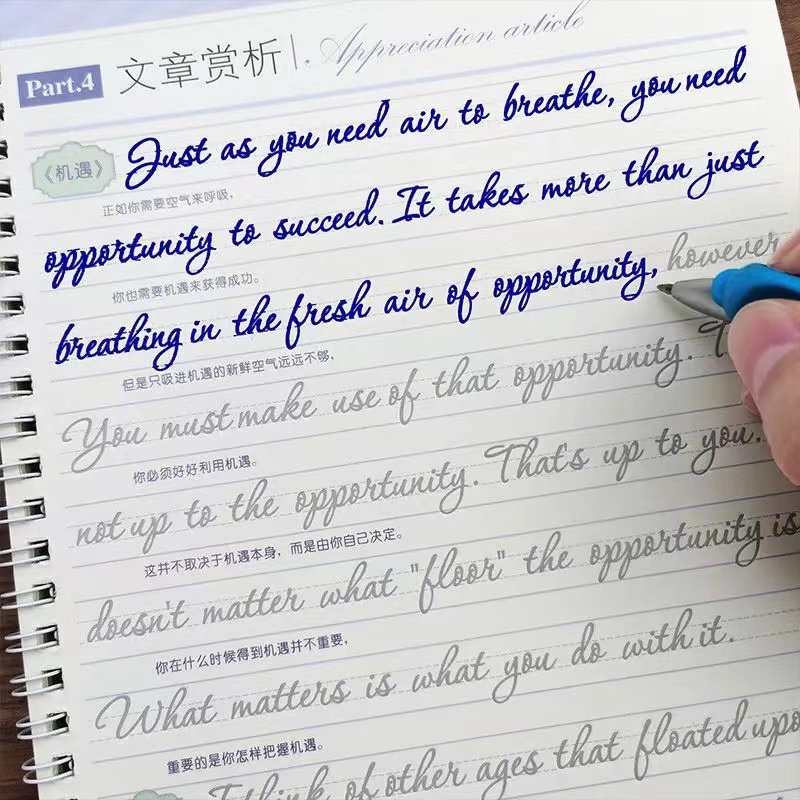 Part.4 文章赏析 Appreciation article
《机遇》 Just as you need air to breathe, you need
正如你需要空气来呼吸，
opportunity to succeed. It takes more than just
你也需要机遇来获得成功。
breathing in the fresh air of opportunity, however
但是只吸进机遇的新鲜空气远远不够，
You must make use of that opportunity.
你必须好好利用机遇。
not up to the opportunity. That's up to you.
这并不取决于机遇本身，而是由你自己决定。
doesn't matter what "floor" the opportunity is
你在什么时候得到机遇并不重要，
What matters is what you do with it.
重要的是你怎样把握机遇。
Think of other ages that floated upo